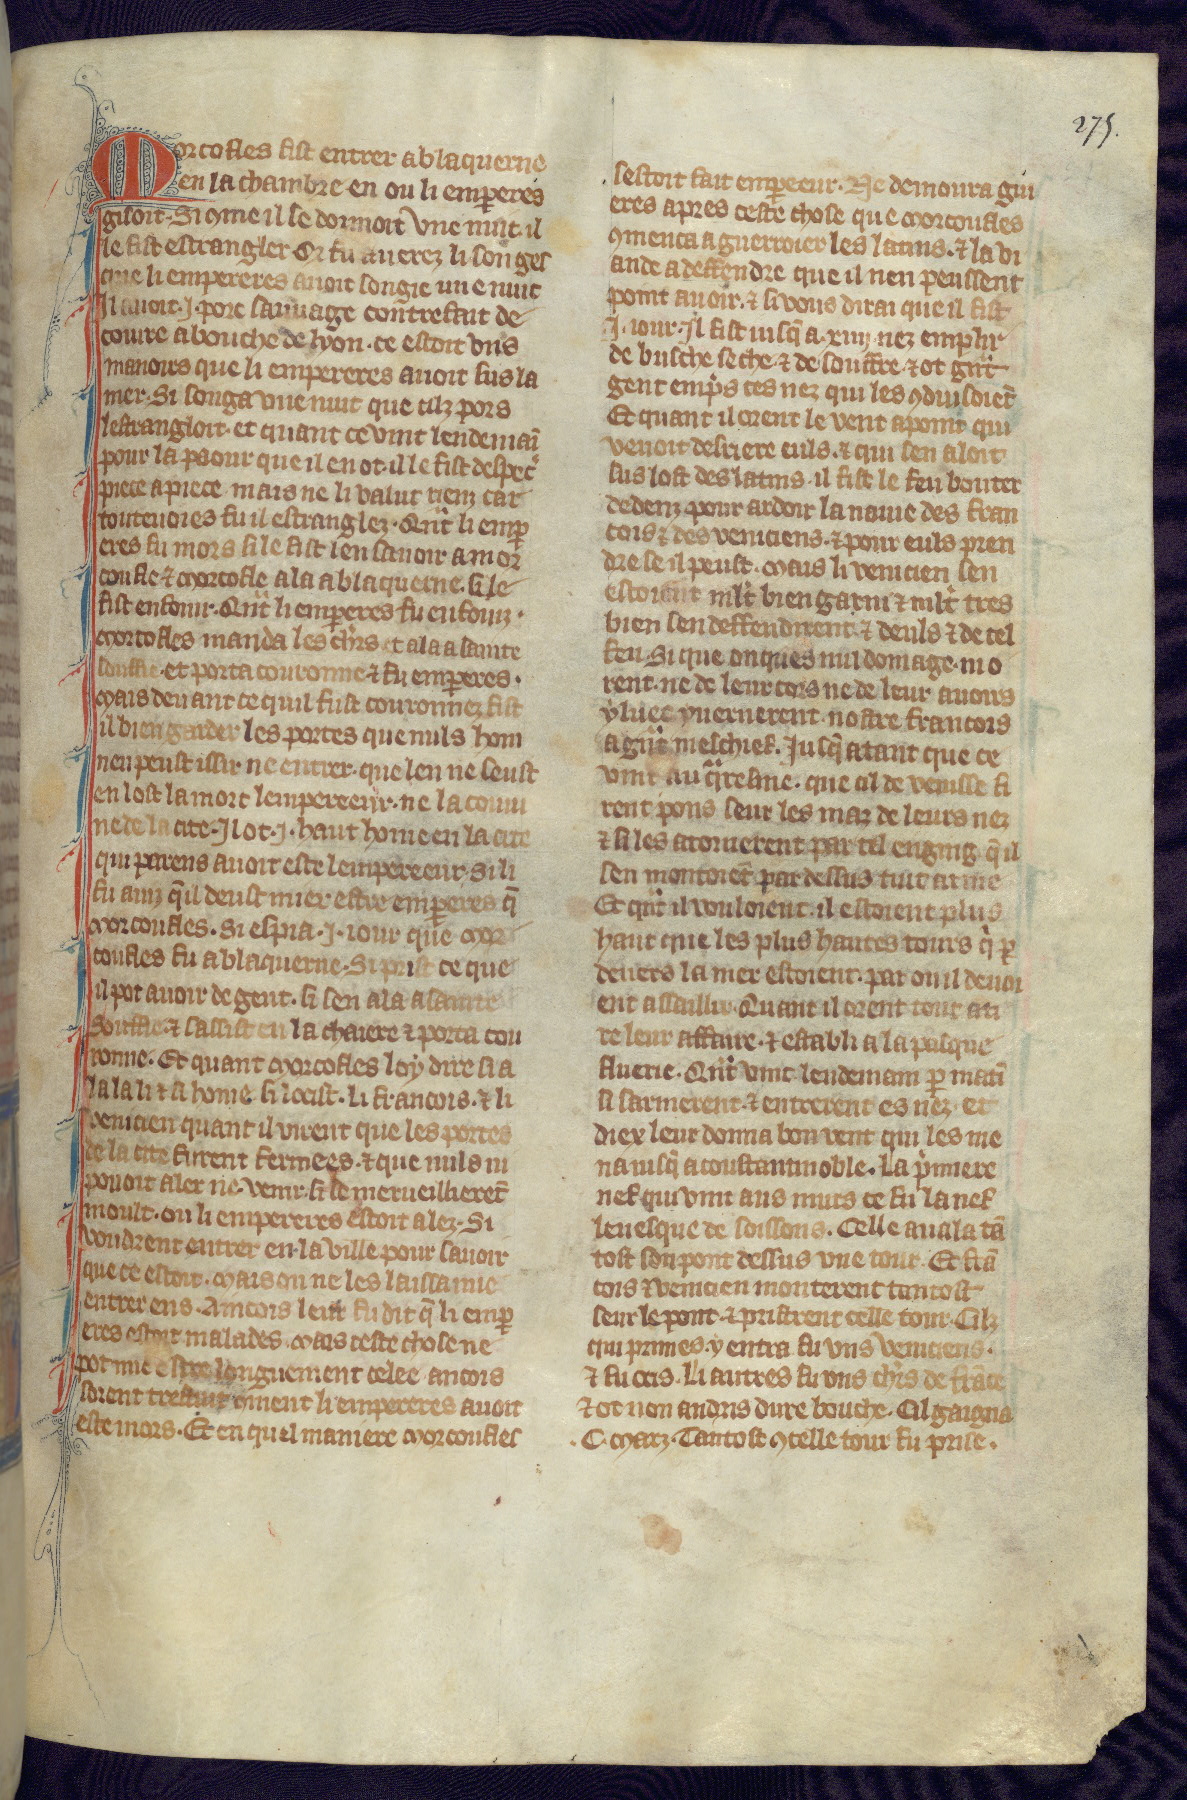 275.
Morcofles fist entrer a blaquerne
en la chambre en ou li emperes
gisoit. Si ꝯme il se dormoit vne nuit. il
le fist estrangler Or fu averez li songes
que li empereres auoit songie une nuit
Il auoit .j. porc sauuage contrefait de
couure a bouche de lyon. ce estoit vns
manoirs que li empereres auoit sus la
mer. Si songa vne nuit que cilz pors
lestrangloit. et quant ce vint lendemaī
pour la paour que il en ot. il le fist despec̄
piece a piece. mais ne li valut riens car
toutevoies fu il estranglez. Qn̄t li emp̲
eres fu mors si le fist len sauoir a mor
coufle ⁊ morcofle ala a blaquerne. si le
fist enfouir. Qn̄t li emperes fu enfouiz.
Morcofles manda les ch̄rs et ala a sainte
souffie. et porta couronne ⁊ fu emperes.
Mais deuant ce quil fust couronnez fist
il bien garder les portes que nuls hom
nen peust issir ne entrer. que len ne seust
en lost la mort lempereeur. ne la couui
ne de la cite. Il ot .j. haut home en la cite
qui parens auoit este lempereeur. Si li
fu auiz q̄ il deust miex estre emperes q̄
Morcoufles. Si espia .j. iour que mor
coufles fu a blaquerne. Si prist ce que
il pot auoir de gent. si sen ala a sainte
Souffie. ⁊ sassist en la chaiere ⁊ porta cou
ronne. Et quant Morcofles loy dire si a
la la li ⁊ si home si locist. Li francois. ⁊ li
venicien quant il virent que les portes
de la cite furent fermees. ⁊ que nuls ni
pouoit aler ne venir. si se merueillierēt
moult. ou li empereres estoit alez. Si
voudrent entrer en la ville pour sauoir
que ce estoit. Mais on ne les laissa mie
entrer ens. Aincois leur fu dit q̄ li emp̲
eres estoit malades. Mais ceste chose ne
pot mie estre longuement celee ancois
sorent trestuit ꝯment li empereres auoit
este mors. Et en quel maniere morcoufles
sestoit fait empeeur. Ne demoura gui
eres apres ceste chose que morcoufles
ꝯmenca a guerroier les latins. ⁊ la vi
ande a deffendre que il nen peussent
point auoir. ⁊ si vous dirai que il fist
.J. iour. Il fist iusq̄ a .xiiij. nez emplir
de busche seche ⁊ de souffre. ⁊ ot gn̄t
gent emp̄s ces nez qui les ꝯduisoiēt
Et quant il orent le vent a point qui
venoit desriere euls. ⁊ qui sen aloit
sus lost des latins. il fist le feu bouter
dedenz pour ardoir la nauie des fran
cois ⁊ des veniciens. ⁊ pour euls pren
dre se il peust. Mais li venicien sen
estoient ml̄t bien garni ⁊ ml̄t tres
bien sen deffendirent ⁊ deuls ⁊ de cel
feu. Si que onques nul domage ni o
rent. ne de leur cors ne de leur auoirs
yluec yuernerent nostre francois
a gn̄t meschief. Jusq̄ a tant que ce
vint au q̄resme. que cil de venisse fi
rent pons seur les maz de leurs nez
⁊ si les atornerent par tel enging q̄ il
sen montoiēt par dessus tuit arme
Et qn̄t il vouloient. il estoient plus
haut que les plus hautes tours q̄ p̲
deuers la mer estoient. par ou il deuoi
ent assaillir. Quant il orent tout ati
re leur affaire. ⁊ establi a la pasque
fluerie. Qn̄t vint lendemain p̲ matī
si sarmerent. ⁊ entrerent es nez. et
diex leur donna bon vent qui les me
na iusq̄ a coustantinoble. La p̄miere
nef qui vint aus murs ce fu la nef
leuesque de soissons. Celle auala tā
tost son pont dessus vne tour. Et frā
cois ⁊ venicien monterent tantost
seur le pont. ⁊ pristrent celle tour. Cilz
qui primes y entra fu vns veniciens.
⁊ fu ocis. Li autres fu vns ch̄rs de frāce
⁊ ot non andris dure bouche. Cil gaigna
.C. marz. Tantost ꝯ celle tour fu prise.